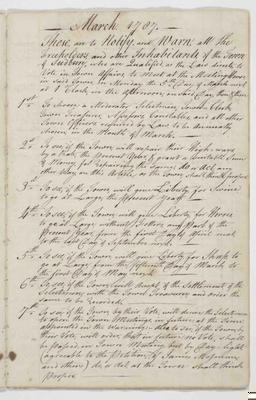 March 1787.
These are to Notify and Warn all the
Freeholders and other Inhabitants of the Town
of Sudbury, who are Qualified as the Law directs to
Vote in Town Affairs to meet at the Meeting House
in said Town on Monday the Day of March next
at 1 Clock in the afternoon, on the
1st To choose a Moderator Selectmen, Town Clerk
Town Treasurer, Assessors Constables, and all other
Town Officers required by Law to be annually
chosen in the Month of March.
2d To see if the Town will repair their High ways
by a Rate the present Year, & grant a suitable Sum
of Money for repairing the same; do or act any
other thing on this Article as the Town shall think proper
3d To see if the Town will give Liberty for Swine
to go at Large the Present Year
4th To see if the Town will give Liberty for Horses
to go at Large without Fetters any Part of the
Present Year from the first Day of April next
to the last Day of September next
5th To see if the Town will give Liberty for Sheep to
go at Large from the Day of March to
the first Day of May next
6th To see if the Town will accept of the Settlement of the
Selectmen with the Town Treasurer and order the
same to be Recorded
7th To see if the Town by their Vote, will direct the Selectmen
to open the Town Meetings in future at the Time
appointed in the warning: also to see if the Town by
their Vote, will order that in future no Vote, shall
be passed in Town Meeting but by Day-light
(agreeable to the Petition of James
and others) do or act as the Town shall think
proper